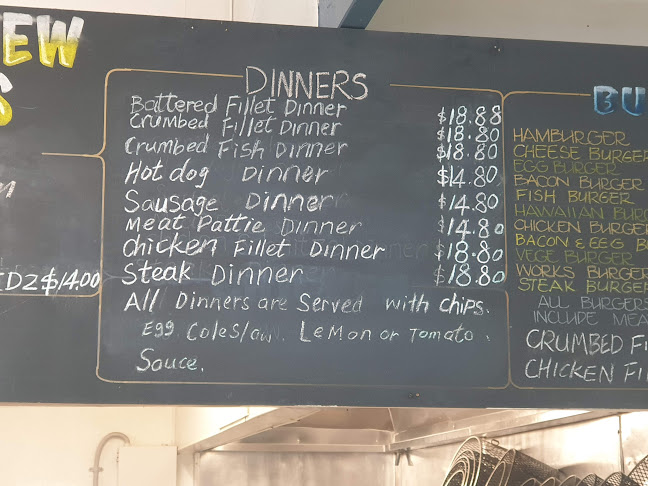 EW
S
DINNERS
Battered Fillet Dinner $18.88
Crumbed Fillet Dinner $18.80
Crumbed Fish Dinner $18.80
Hot dog Dinner $14.80
Sausage Dinner $14.80
Meat Pattie Dinner $14.80
Chicken Fillet Dinner $18.80
Steak Dinner $18.80
All Dinners are Served with chips.
Egg Coleslaw. Lemon or Tomato.
Sauce.
DZ $14.00
BU
HAMBURGER
CHEESE BURGER
EGG BURGER
BACON BURGER
FISH BURGER
HAWAIIAN BURG
CHICKEN BURGER
BACON & EGG B
VEGE BURGER
WORKS BURGER
STEAK BURGER
ALL BURGERS
INCLUDE MEA
CRUMBED Fi
CHICKEN FI